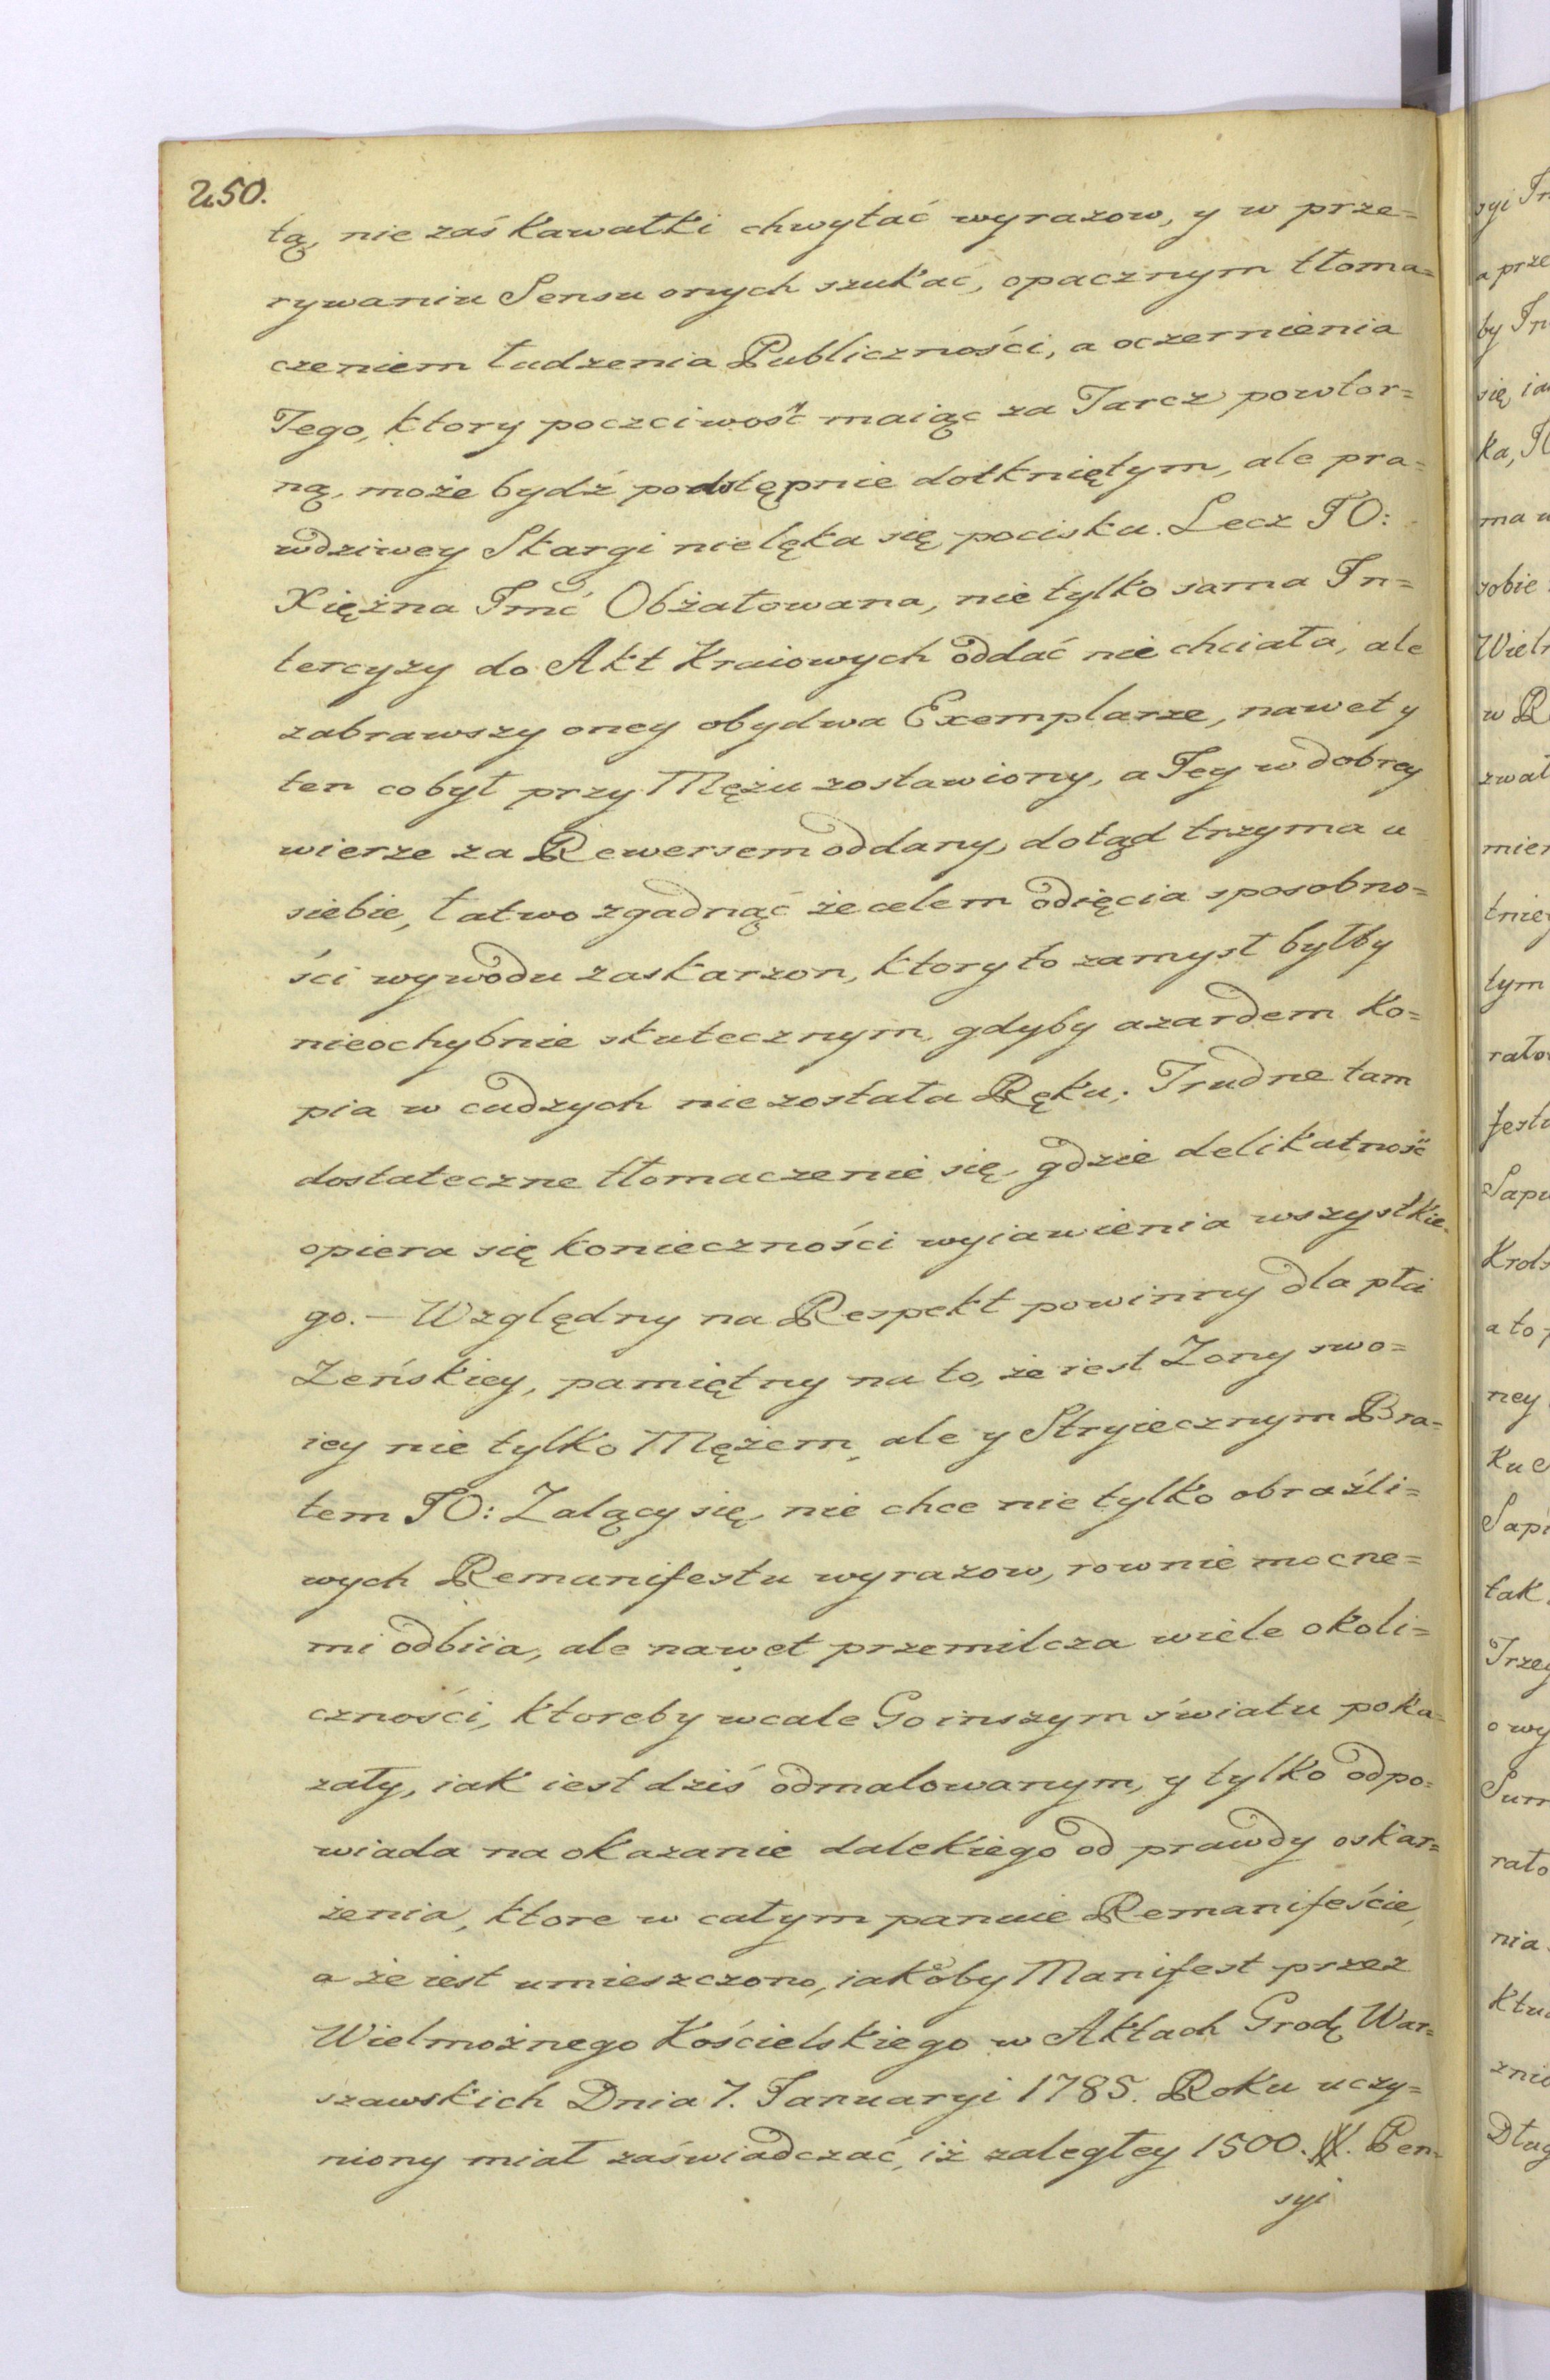 250.
tą, nie zaś kawałki chwytać wyrazow, y w prze=
rywaniu Sensu onych szukać, opacznym tłoma=
czeniem łudzenia Publiczności, a oczernienia
Tego, ktory poczciwość maiąc za Tarcz powtor=
ną, może bydź podstępnie dotkniętym, ale pra=
wdziwey Skargi nielęka się pocisku. Lecz JO:
Xiężna Jmć Obżałowana, nie tylko sama In=
tercyzy do Akt Kraiowych oddać nie chciała, ale
zabrawszy oney obydwa Exemplarze, nawet y
ten co był przy Mężu zostawiony, a Jey w dobrey
wierze za Rewersem oddany, dotąd trzyma u
siebie, łatwo zgadnąć że celem odięcia sposobno=
ści wywodu zaskarzon, ktory to zamysł byłby
nieochybnie skutecznym, gdyby azardem Ko=
pia w cudzych nie została Ręku. Trudne tam
dostateczne tłomaczenie się, gdzie delikatność
opiera się konieczności wyiawienia wszystkie=
go. – Względny na Respekt powinny dla płci
Zeńskiey, pamiętny na to, że iest Zony swo=
iey nie tylko Mężem, ale y Stryiecznym Bra=
tem JO: Zalący się, nie chce nie tylko obraźli=
wych Remanifestu wyrazow, rownie mocne=
mi odbiia, ale nawet przemilcza wiele okoli=
czności, ktoreby wcale Go inszym światu poka=
zały, iak iest dziś odmalowanym, y tylko odpo=
wiada na okazanie dalekiego od prawdy oskar=
żenia, ktore w całym panuie Remanifeście,
a że iest umieszczono, iakoby Manifest przez
Wielmożnego Kościelskiego w Aktach Grod. War=
szawskich Dnia 7. Januaryi 1785. Roku uczy=
niony miał zaświadczać, iż zaległey 1500. Pen=
syi